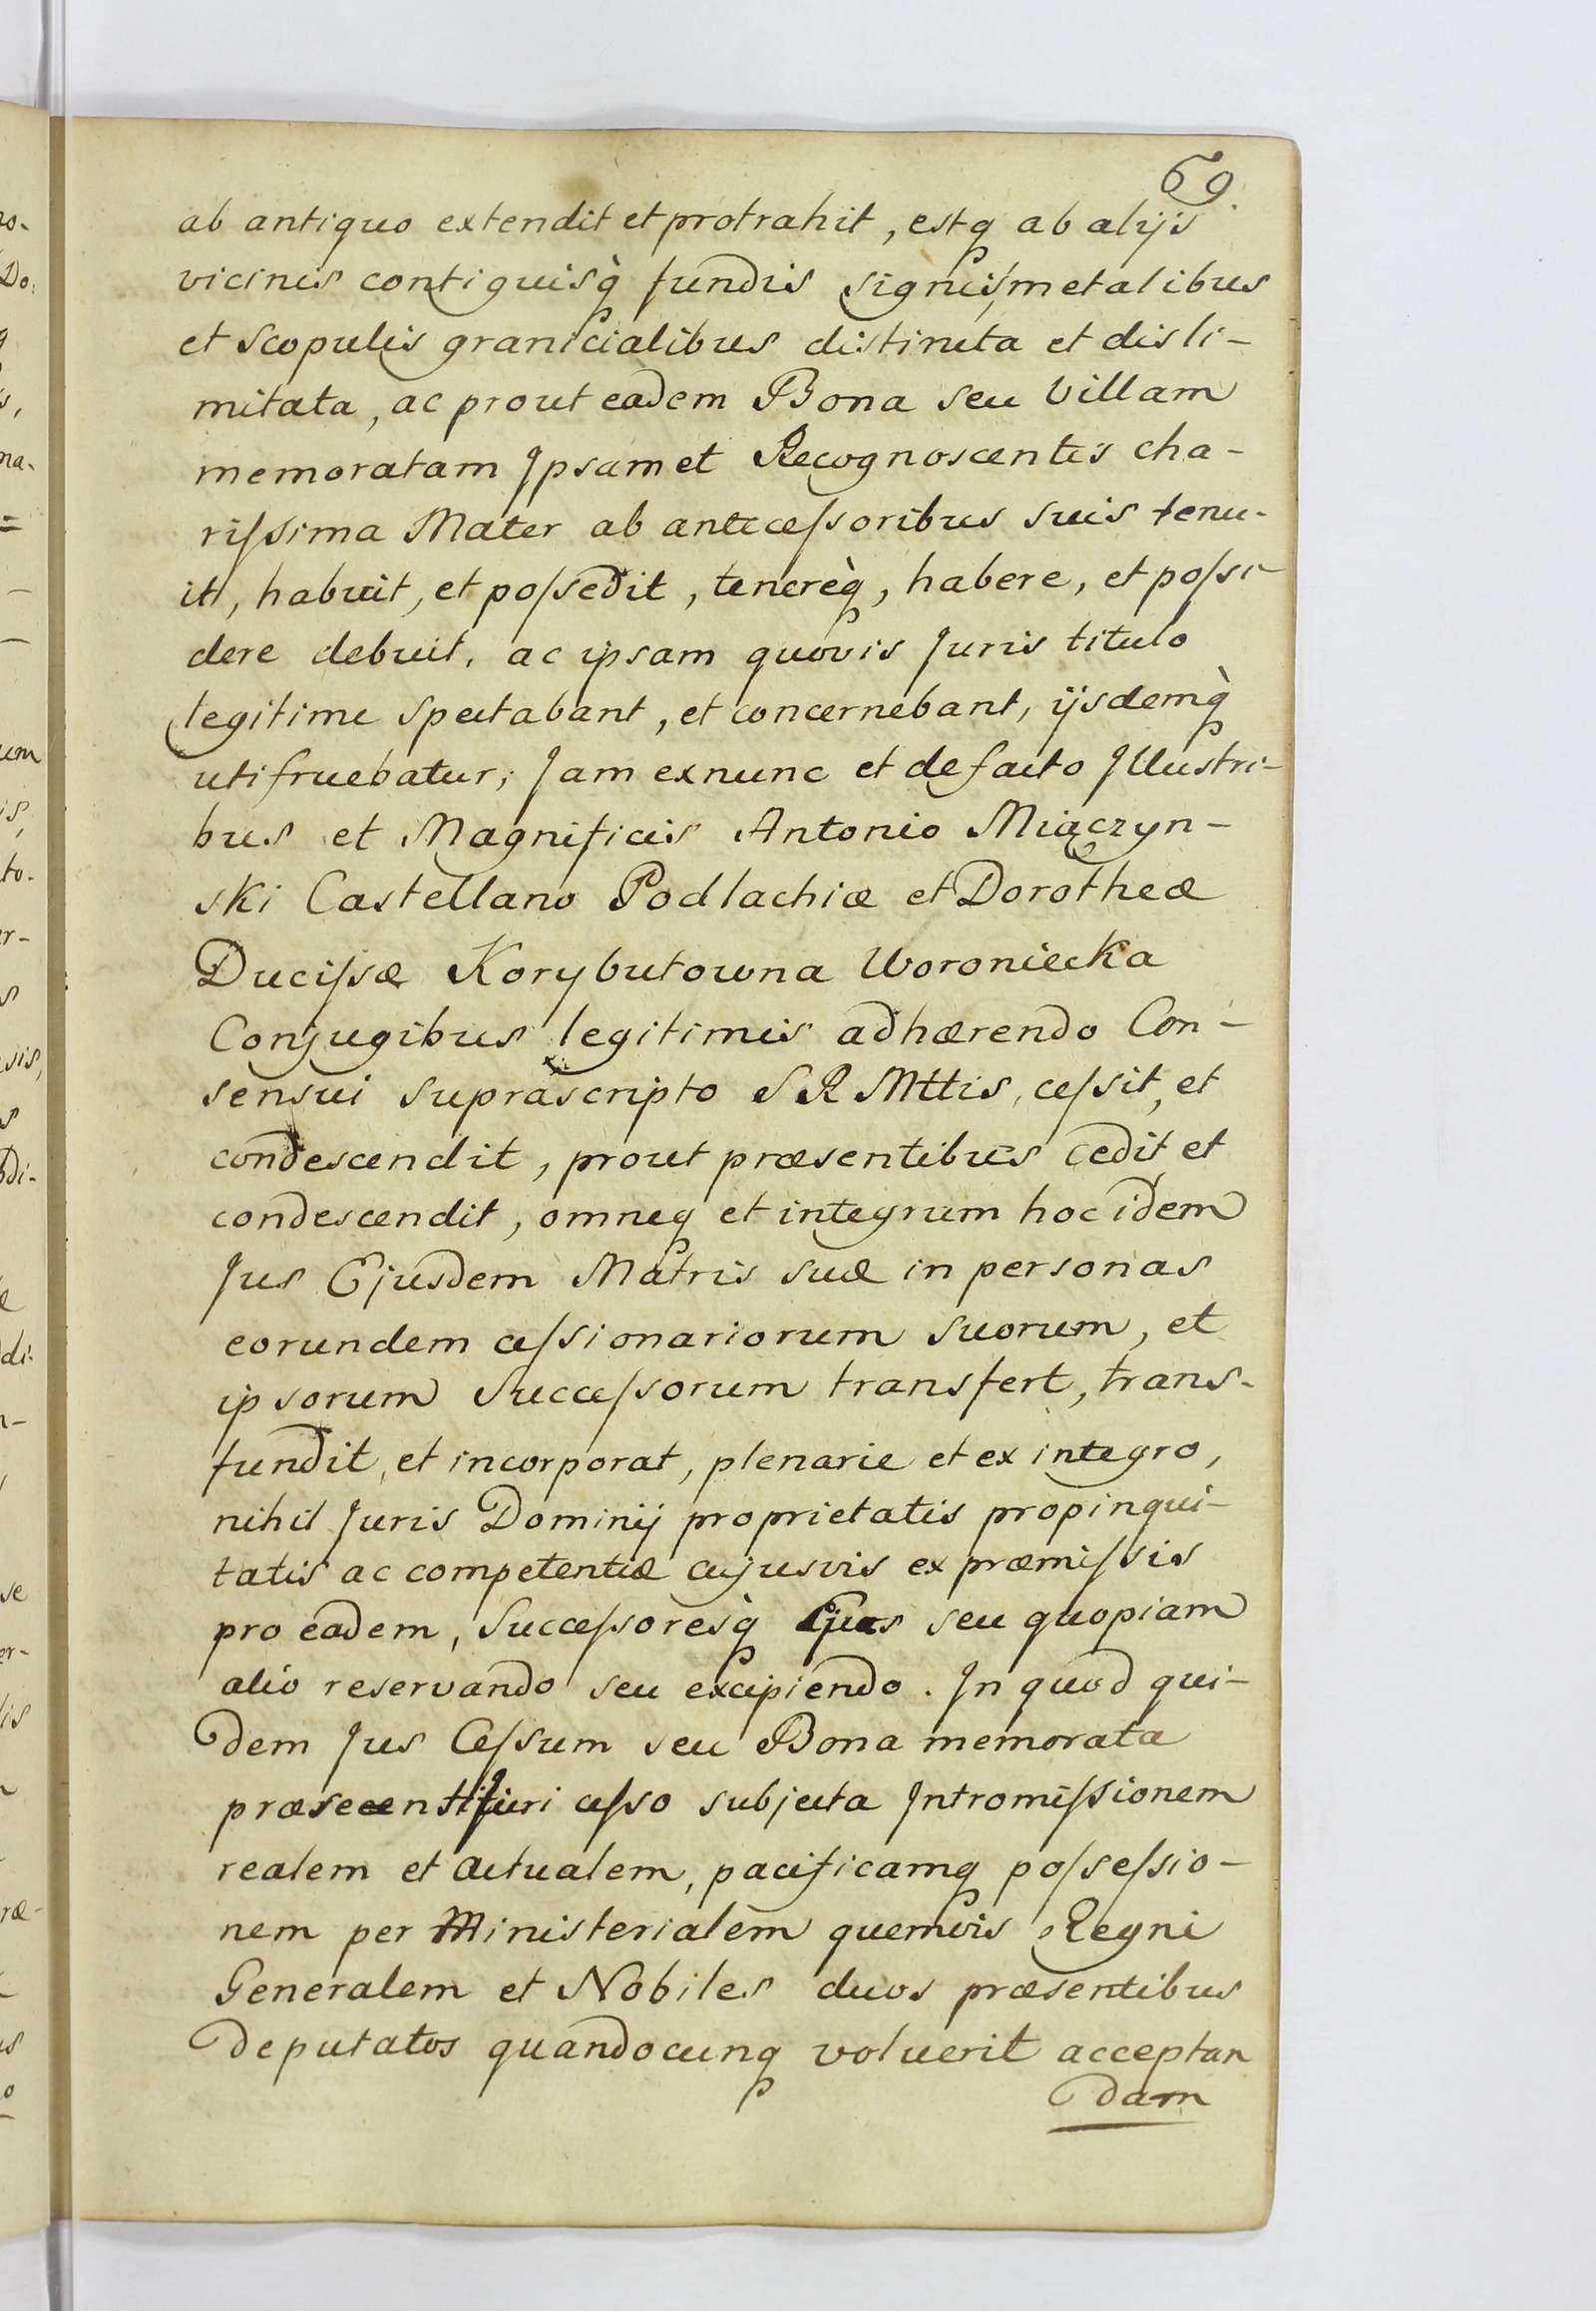 69.
ab antiquo extendit et protrahit, estq ab alijs
vicinis contiguisq̀ fundis signis, metalibus
et scopulis granicialibus distincta et disli-
mitata, ac prout eadem Bona seu Villam
memoratam Ipsamet Recognoscentis cha-
rissima Mater ab antecessoribus suis tenu-
it, habuit, et possedit, tenereq̀, habere, et possi-
dere debuit, ac ipsam quovis Juris titulo
legitime spectabant, et concernebant, ijsdemq̀
utifruebatur; Jam exnunc et defacto Illustri-
bus et Magnificis Antonio Miączyn-
ski Castellano Podlachiæ et Dorotheæ
Ducissæ Korybutowna Woroniecka
Conjugibus legitimis adhærendo Con-
sensui suprascripto S R Mttis, cessit, et
condescendit, prout præsentibus cedit et
condescendit, omneq et integrum hoc idem
Jus Ejusdem Matris suæ in personas
eorundem cessionariorum suorum, et
ipsorum Successorum transfert, trans-
fundit, et incorporat, plenarie et ex integro,
nihil Juris Dominij proprietatis propinqui-
tatis ac competentiæ cujusvis ex præmissis
pro eadem, Successoresq̀ Ejus seu quopiam
alio reservando seu excipiendo. In quod qui-
dem Jus Cessum seu Bona memorata
præsenti Juri cesso subjecta Intromissionem
realem et actualem, pacificamq possessio-
nem per Ministerialem quemvis Regni
Generalem et Nobiles duos præsentibus
deputatos quandocunq voluerit acceptan
dam